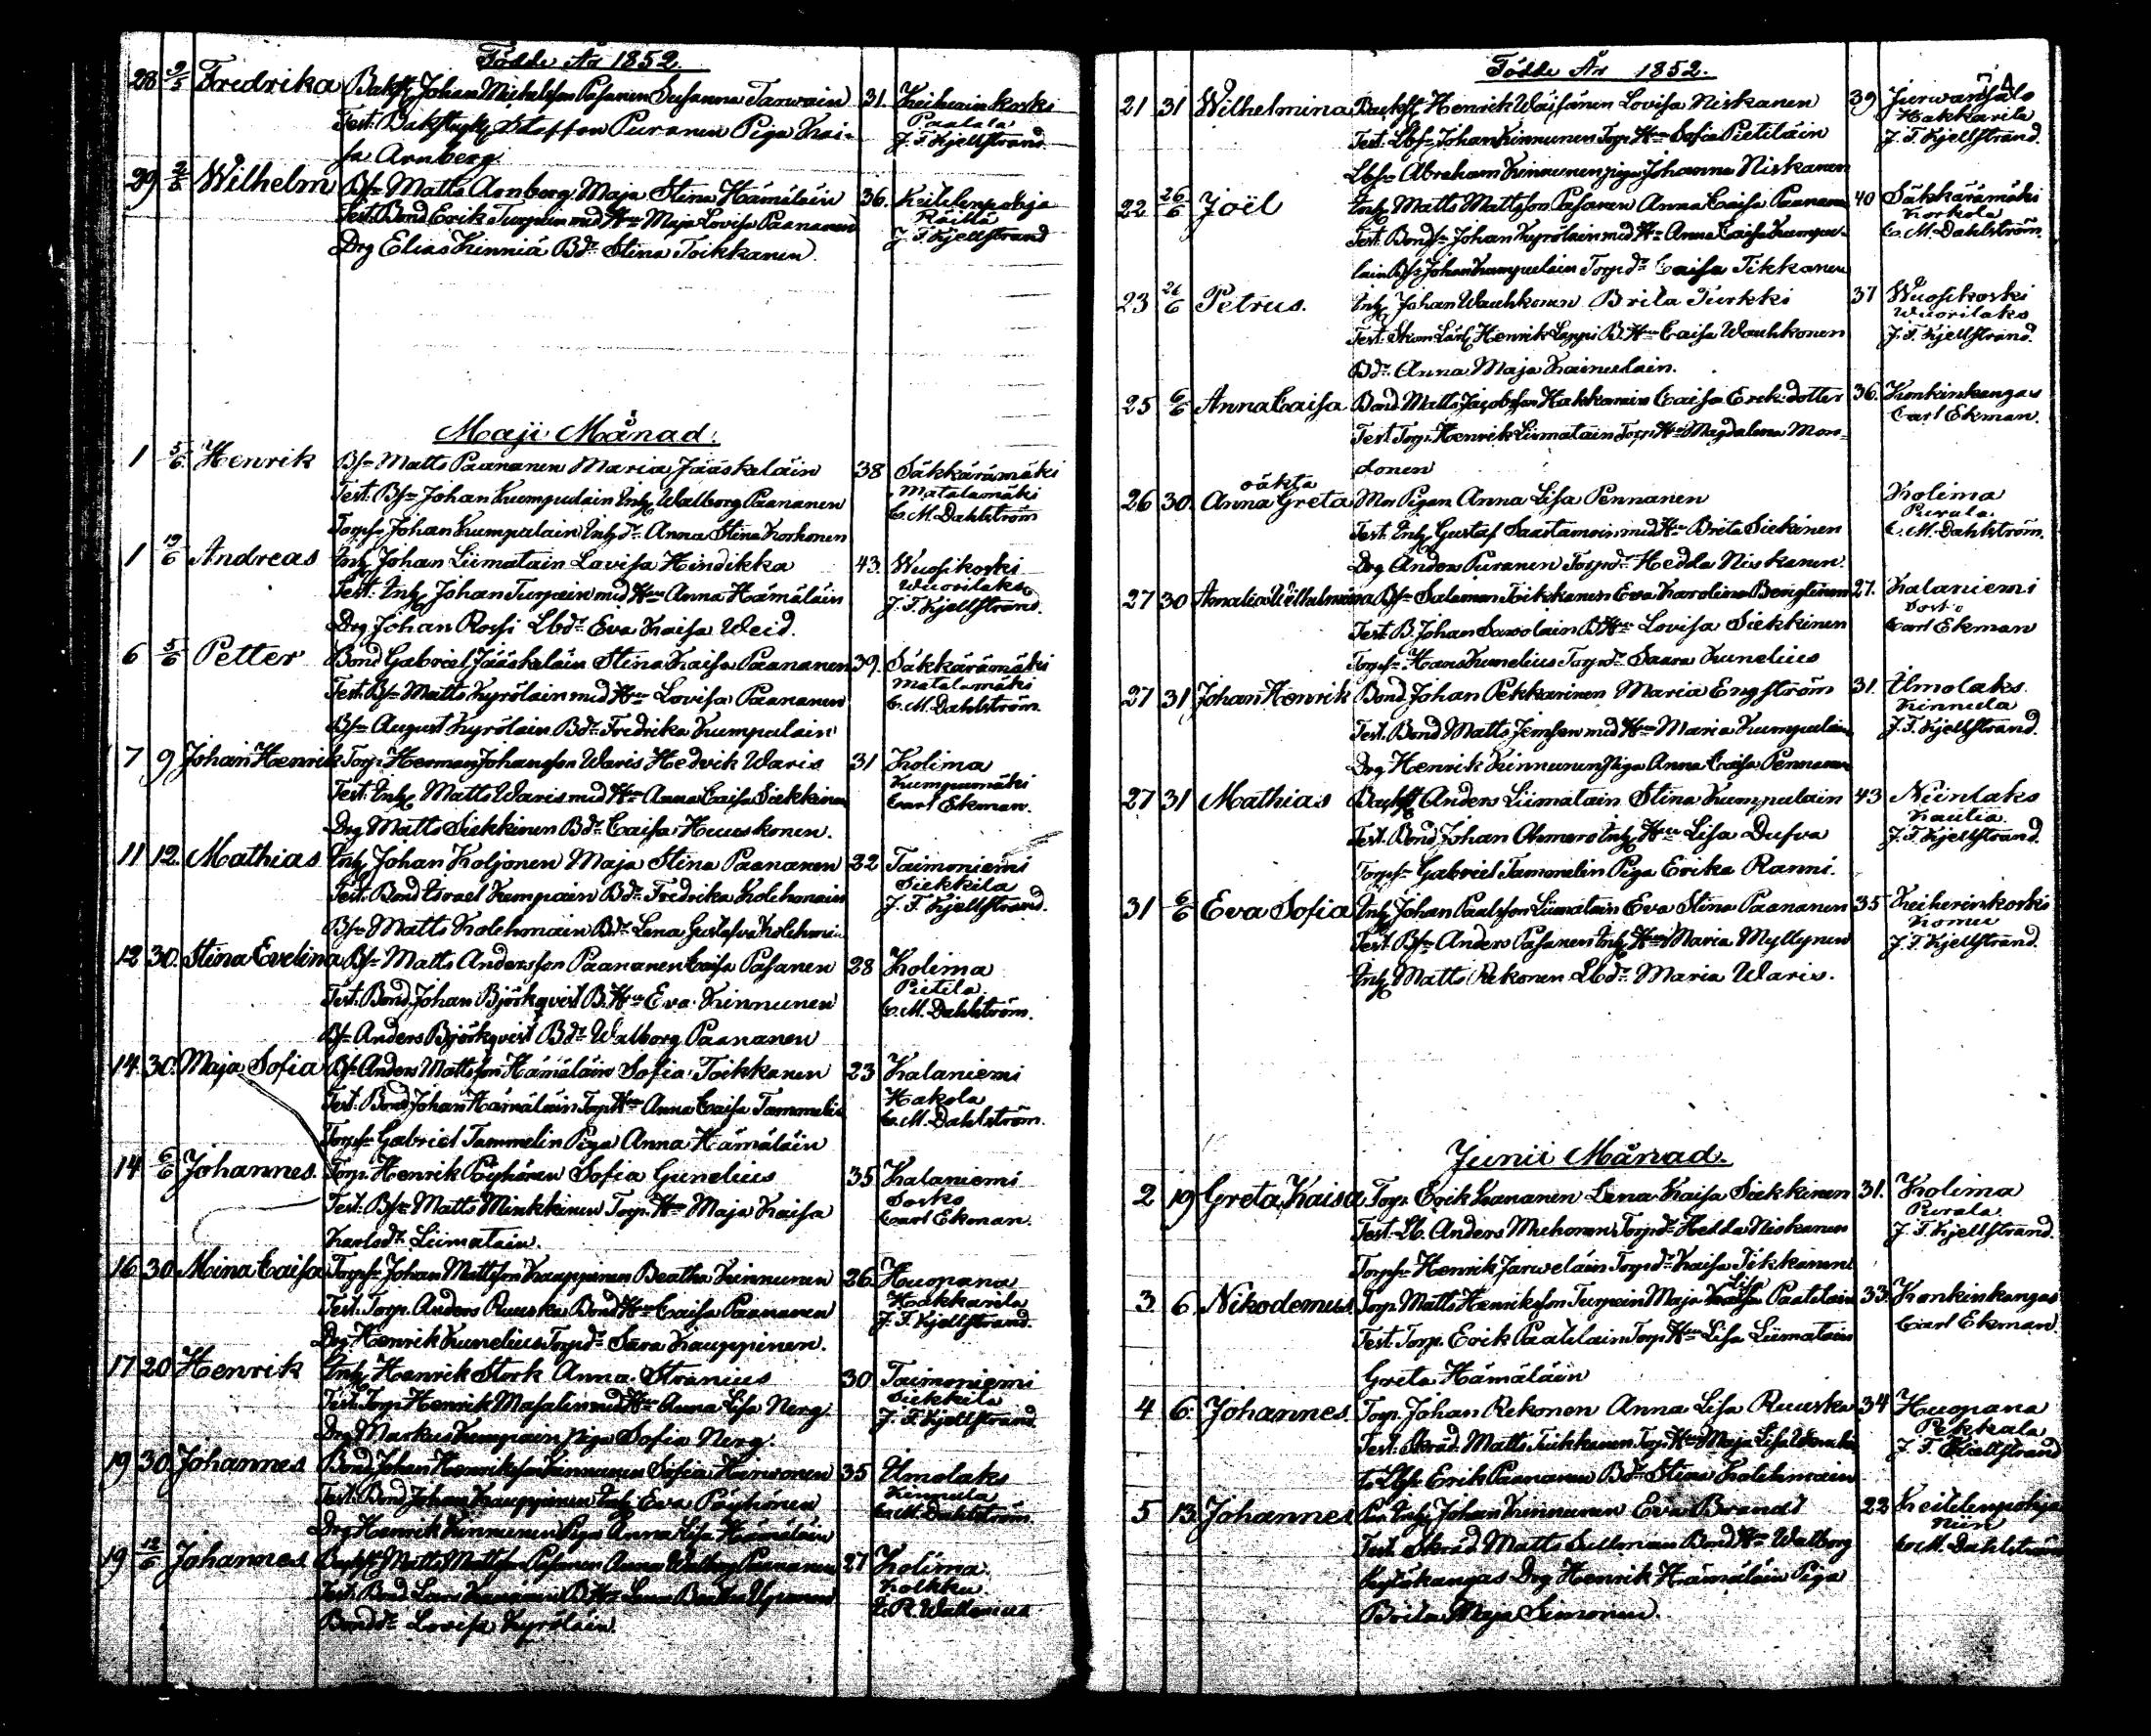 Födde År 1852.
28 2/5 Fredrika Bakst Johan Michelsson Pasanen Susanna Tarvain 31. Keiherinkoski
Paalala
Test: Staffan Puranen Piga Kai-
J. F. Kjellstrand
sa Arnberg
29 2/5 Wilhelm Bs. Matts Arnberg Maja Stina Hämäläin 36. Keitelenpohja
Räihä
Test. Bond Erik Turpein med H. Maja Lovisa Paananen
J. F. Kjellstrand
Drg Elias Kinniä Bdr. Stina Toikkanen
Maji Månad.
1 5/6 Henrik Bsn Matts Paananen Maria Jääskeläin 38 Säkkärämäki
Matalamäki
Test. Bsn Johan Kumpulain Inh. Walborg Paananen
C. M. Dahlström
Torpsn Johan Kumpulain Inh. dr. Anna Stina Korhonen
1 19/6 Andreas Inh. Johan Liimatain Lovisa Hindikka 43. Wuosikoski
Wuorilaks
Test. Inh. Johan Turpein med Hu Anna Hämäläin
J. F. Kjellstrand.
Drg Johan Rossi Lbdr Eva Kaisa Weid.
6 5/6 Petter Bond Gabriel Jääskeläin Stina Kaisa Paananen 39. Säkkärämäki
Matalamäki
Test. Bsn Matts Kyröläin med Hu Lovisa Paananen
C. M. Dahlström.
Bsn August Kyröläin Bdr Fredrika Kumpulain
7 9 Johan Henrik Torp. Herman Johansson Waris Hedvik Waris 31 Kolima
Kumpumäki
Test. Inh. Matts Waris med Hu Anna Caisa Siekkinen
Carl Ekman.
Drg Matts Siekkinen Bdr Caisa Huuskonen.
11 12. Mathias Inh. Johan Koljonen Maja Stina Paananen 32 Taimoniemi
Siekkilä
Test. Bond Israel Kempain Bdr Fredrika Kolehmain
J. F. Kjellstrand.
Bsn Matts Kolehmain Bdr Lena Gustafva Kolehmain
12 30. Stina Evelina Bsn Matts Andersson Paananen Caisa Pasanen 28 Kolima
Pietilä.
Test. Bond Johan Björkqvist B. Hu Eva Kinnunen
C. M. Dahlström.
Bsn Anders Björkqvist Bdr Walborg Paananen
14. 30. Maja Sofia Bsn Anders Mattsson Hämäläin Sofia Toikkanen 23 Kalaniemi
Hakola
Test. Bond Johan Hämäläin Torp Hu Anna Caisa Tammelin
C. M. Dahlström.
Torpsn Gabriel Tammelin Piga Anna Hämäläin
14 6/6 Johannes. Torp. Henrik Pöyhönen Sofia Gunelius 35 Kalaniemi
Sorko
Test. Bsn Matts Minkkinen Torp. Hu Maja Kaisa
Carl Ekman.
Karlsdr Liimatain.
16 30. Mina Caisa Torpsn Johan Mattsson Kauppinen Beatha Kinnunen 26. Huopana
Hakkarila
Test. Torp. Anders Ruuska Bond Hu Caisa Paananen
J. F. Kjellstrand.
Drg Henrik Kunelius Torpdr Sara Kauppinen.
17 20 Henrik Inh. Henrik Stork Anna Stranius 30 Taimoniemi
Siekkilä
Test. Torp Henrik Masalin med Hu Anna Lisa Nerg.
J. F. Kjellstrand
Drg Markus Kempain piga Sofia Nerg.
19 30. Johannes Bond Johan Henriksson Kinnunen Sofia Hänninen 35 Ilmolaks
Kinnula
Test. Bond Johan Kauppinen Inh. Eva Pöyhönen
C. M. Dahlström
Drg Henrik Kinnunen Piga Anna Lisa Hämäläin
19 12/6 Johannes Matts Mattsson Pasanen Anna Walborg Paananen 27 Kolima.
Kolkku.
Test. Bond Lars B. Hu Lena Beatha
Bonddr Lovisa Kyröläin.
Födde År 1852.
21 31 Wilhelmina Backst Henrik Wäisänen Lovisa Niskanen 39 Jurvansalo
Hakkarila
Test. Lbsn Johan Kinnunen Torp. Hu Sofia Pietiläin
J. F. Kjellstrand.
Lbsn Abraham Kinnunen piga Johanna Niskanen
22 26/6 Joël Inh. Matts Mattsson Pasanen Anna Caisa Paananen 40 Säkkärämäki
Korkola
Test. Bondsn Johan Kyröläin med Hu Anna Caisa Kumpu-
C. M. Dahlström.
lain Bsn Johan Kumpulain Torpdr Caisa Tikkanen
23 26/6 Petrus. Inh. Johan Wauhkonen Brita Turkki 37 Wuosikoski
Wuorilaks
Test. Skom. Lärl. Henrik Leppi B. Hu Caisa Wauhkonen
J. F. Kjellstrand.
Bdr. Anna Maja Kainulain.
25 6/6 Anna Caisa Bond Matts Jacobsson Hakkarain Caisa Erik.dotter 36. Konkinkangas
Carl Ekman.
Test Torp. Henrik Liimatain Torp. Hu Magdalena Mor-
donen
oäkta
26 30. Anna Greta Mor Pigan Anna Lisa Pennanen Kolima
Purala.
Test. Inh. Gustaf Saastamoin med Hu Brita Siekinen
C. M. Dahlström.
Drg Anders Puranen Torpdr Hedda Niskanen.
27 30 Amalia Wilhelmina Bsn Salomon Toikkanen Eva Karolina Benglinen 27. Kalaniemi
Sorko
Test. B. Johan Savolain B Hu Lovisa Siekkinen
Carl Ekman
Torpsn Hans Kunelius Torpdr Saara Kunelius
27 31 Johan Henrik Bond Johan Pekkarinen Maria Engström 31. Ilmolaks.
Kinnula
Test. Bond Matts Jemsen med Hu Maria Kumpulain
J. F. Kjellstrand.
Drg Henrik Kinnunen Piga Anna Caisa Pennanen
27 31 Mathias Backst Anders Liimatain Stina Kumpulain 43 Niinilaks
Kautia.
Test. Bond Johan Ahmaro Inh. Hu Lisa Dufva
J. F. Kjellstrand.
Torpsn Gabriel Tammelin Piga Erika Ranni.
31 6/6 Eva Sofia Inh. Johan Paulsson Liimatain Eva Stina Paananen 35 Keiherinkoski
Komu
Test. Bsn Anders Pasanen Inh. Hu Maria Myllynen
J. F. Kjellstrand.
Inh. Matts Rekonen Lbdr Maria Waris.
Junii Månad.
2 19 Greta Kaisa Torp. Erik Paananen Lena Kaisa Siekkinen 31. Kolima
Purala.
Test. Lb. Anders Muhonen Torpdr Hedda Niskanen
J. F. Kjellstrand.
Torpsn Henrik Järveläin Torpdr Kaisa Tikkanen
3 6. Nikodemus. Torp. Matts Henriksson Turpein Maja Lisa Paatelain 33. Konkinkangas
Carl Ekman.
Test. Torp. Erik Paatelain Torp. Hu Lisa Liimatain
Greta Hämäläin
4 6. Johannes Torp. Johan Rekonen Anna Lisa Ruuska 34 Huopana
Pekkala
Test. Skräd. Matts Tikkanen Torp. Hu Maja Lisa
J. F. Kjellstrand
Lbsn Erik Paananen Bdr Stina Kolehmain
5 13. Johannes Inh. Johan Kinnunen Eva Brandt 22 Keitelenpohja
Niin
Test. Skräd Matts Sillman Bond Hu Walborg
C. M. Dahlström
Kytökangas Drg Henrik Hämäläin Piga
Brita Maja Simonen.